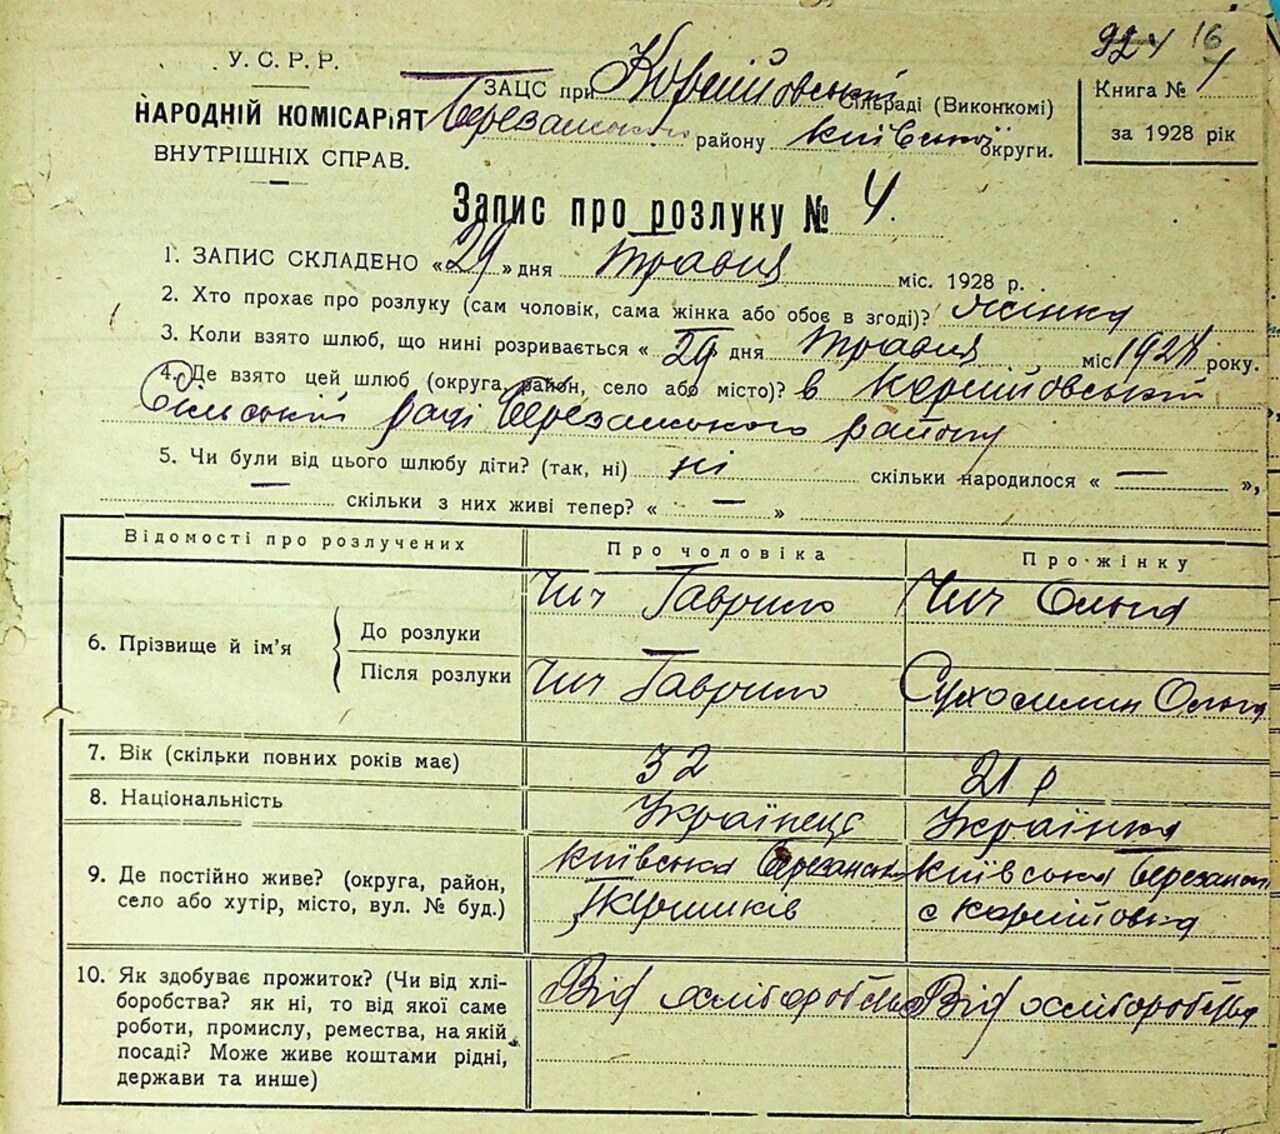 924 16
У. С. Р. Р.
НАРОДНІЙ КОМІСАРІЯТ
ВНУТРІШНІХ СПРАВ.
ЗАЦС при Корніївській Сільраді (Виконкомі)
Березанського району Київської округи.
Книга № 1
за 1928 рік
Запис про розлуку № 4.
1. ЗАПИС СКЛАДЕНО «29» дня травня міс. 1928 р.
2. Хто прохає про розлуку (сам чоловік, сама жінка або обоє в згоді)? жінка
3. Коли взято шлюб, що нині розривається « 29 дня травня міс 192 року.
4. Де взято цей шлюб (округа, район, село або місто)? в Корніївській
Сільській раді Березанського району
5. Чи були від цього шлюбу діти? (так, ні) ні скільки народилося « — »,
— скільки з них живі тепер? « — »
Відомості про розлучених Про чоловіка Про жінку
6. Прізвище й ім'я
До розлуки Чич Гаврило Чич Ольга
Після розлуки Чич Гаврило Сухомлин Ольга
7. Вік (скільки повних років має) 32 21 р
8. Національність Українець Українка
9. Де постійно живе? (округа, район,
село або хутір, місто, вул. № буд.)
Київська Березанськ
Київська Березанськ
с Корніївка
10. Як здобуває прожиток? (Чи від хлі-
боробства? як ні, то від якої саме
роботи, промислу, ремества, на якій
посаді? Може живе коштами рідні,
держави та инше)
Від хліборобства
Від хліборобства